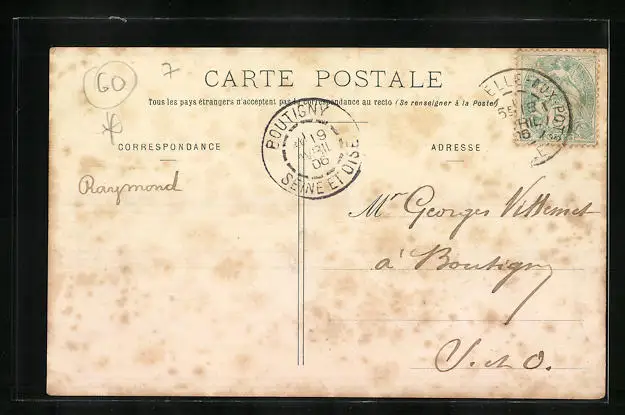 60
7
CARTE POSTALE
Tous les pays étrangers n'acceptent pas la correspondance au recto (Se renseigner à la Poste)
CORRESPONDANCE
ADRESSE
BOUTIGNY
19
AVRIL
06
SEINE ET OISE
Raymond
Mr Georges Villemet
à Boutigny
S. et O.